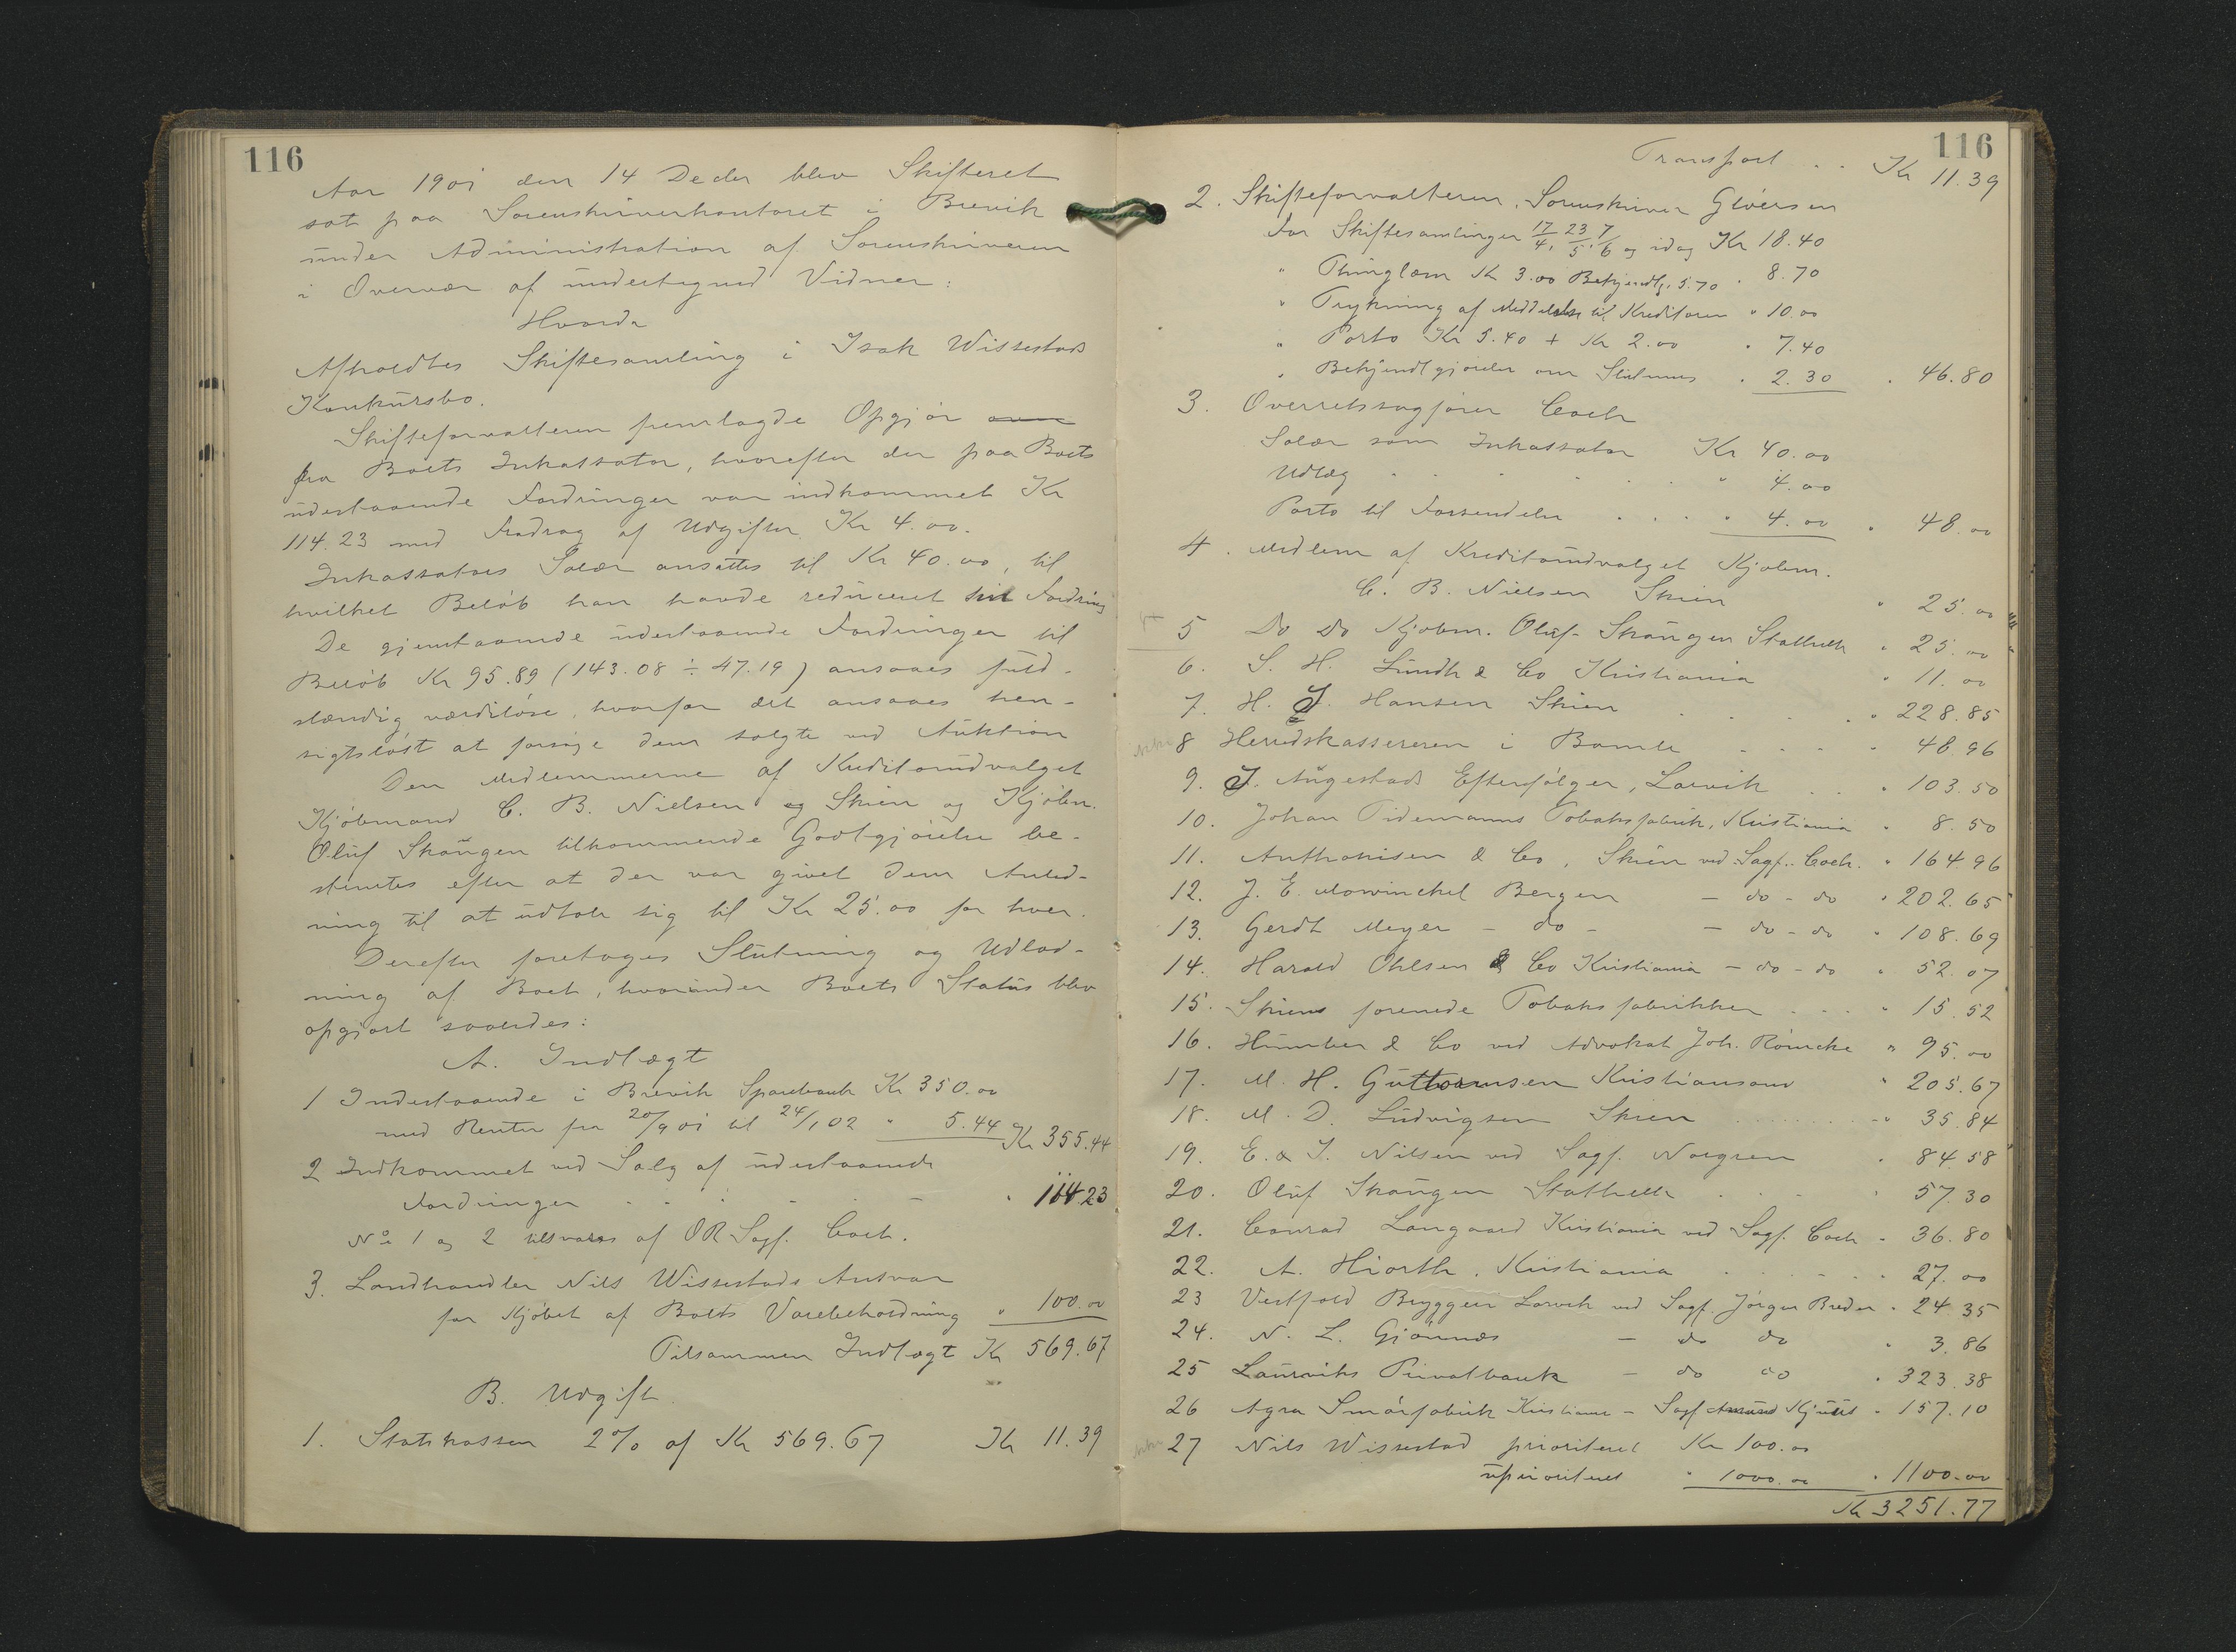 116
Aar 1901 den 14 Decbr blev Skifteret
sat paa Sorenskriverkontoret i Brevik
under Administration af Sorenskriveren
i Overvær af undertegned Vidner:
Hvorda
Afholdtes Skiftesamling i Isak Wissestads
Konkursbo.
Skifteforvalteren fremlagde Opgjør
fra Boets Inkassator, hvorefter der paa Boets
udestaaende Fordringer var indkommet Kr
114.23 med Fradrag af Udgifter Kr 4.00.
Inkassators Salær ansattes til Kr 40.00, til
hvilket Beløb han havde reduceret sin Fordring
De gjenstaaende udestaaende Fordringer til
Beløb Kr 95.89 (143.08 ÷ 47.19) ansaaes fuld-
stændig værdiløse, hvorfor det ansaaes hen-
sigtsløst at forsøge dem solgte ved Auktion
Den Medlemmerne af Kreditorudvalget
Kjøbmand C. B. Nielsen og Skien og Kjøbm.
Oluf Skaugen tilkommende Godtgjørelse be-
stemtes efter at der var givet dem Anled-
ning til at udtale sig til Kr 25.00 for hver.
Derefter foretoges Slutning og Udlod-
ning af Boet, hvorunder Boets Status blev
opgjort saaledes:
A. Indtægt
1 Indestaaende i Brevik Sparebank Kr 350.00
med Renter fra 20/9 01 til 24/1 02 " 5.44 Kr 355.44
2 Indkommet ved Salg af udestaaende
Fordringer . . . . . " 114.23
No 1 og 2 tilsvares af OR Sagf. Coch.
3. Landhandler Nils Wissestads Ansvar
for Kjøbet af Boets Varebeholdning " 100.00
Tilsammen Indtægt Kr 569.67
B. Udgift
1. Statskassen 2% af Kr 569.67 Kr 11.39
116
Transport . . Kr 11.39
2. Skifteforvalteren, Sorenskriver Gløersen
For Skiftesamlinger 17/4, 23/5, 7/6 og idag Kr 18.40
" Thinglæsn Kr 3.00 Bekjendtg. 5.70 " 8.70
" Trykning af Meddelelse til Kreditoren " 10.00
" Porto Kr 5.40 + Kr 2.00 " 7.40
" Bekjendtgjørelse om Slutning " 2.30 " 46.80
3. Overretssagfører Coch
Salær som Inkassator Kr 40.00
Udlæg . . . . . " 4.00
Porto til Forsendelse . . . . " 4.00 " 48.00
4. Medlem af Kreditorudvalget Kjøbm.
C. B. Nielsen Skien " 25.00
5 Do Do Kjøbm. Oluf Skaugen Stathelle " 25.00
6. S. H. Lundh & Co Kristiania " 11.00
7. H. J. Hansen Skien . . . " 228.85
8 Herredskassereren i Bamle . . . . " 48.96
9. J. Augestads Efterfølger, Larvik . . " 103.50
10. Johan Tidemanns Tobaksfabrik, Kristiania " 8.50
11. Anthonisen & Co, Skien ved Sagf. Coch. " 164.96
12. J. E. Mowinckel Bergen - do - do " 202.65
13. Gerdt Meyer - do - - do - do " 108.69
14. Harald Ohlsen & Co Kristiania - do - do " 52.07
15. Skiens forenede Tobaksfabrikker . . . " 15.52
16. Humber & Co ved Advokat Joh. Rømcke " 95.00
17. M. H. Guttormsen Kristiansand " 205.67
18. M. D. Ludvigsen Skien . . . . . " 35.84
19. E. & I. Nilsen ved Sagf. Norgren " 84.58
20. Oluf Skaugen Stathelle . . . " 57.30
21. Conrad Langaard Kristiania ved Sagf. Coch " 36.80
22. A. Hiorth, Kristiania . . . . . " 27.00
23 Vestfold Bryggeri Larvik ved Sagf. Jørgen Breder " 24.35
24. N. L. Gjønnes - do do " 3.86
25 Laurviks Privatbank - do do " 323.38
26 Agra Smørfabrik Kristiania - Sagf. Amund " 157.10
27 Nils Wissestad prioriteret Kr 100.00
uprioriteret " 1000.00 " 1100.00
Kr 3251.77